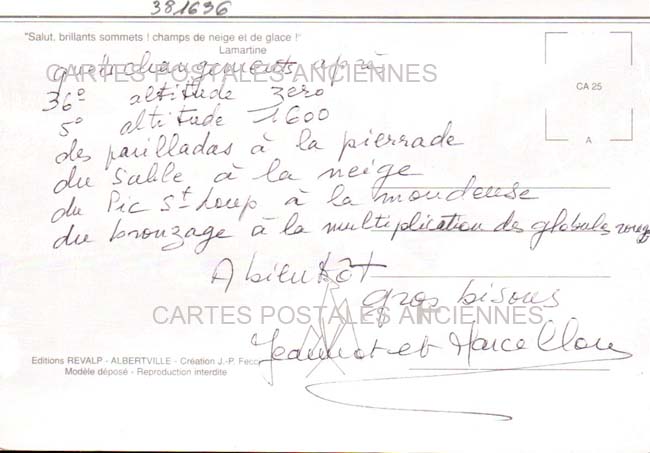 381636
"Salut, brillants sommets ! champs de neige et de glace !"
Lamartine
CARTES POSTALES ANCIENNES
quels changements après
36° altitude zero
5° altitude 1600
CA 25
A
des parilladas à la pierrade
du sable à la neige
du Pic St Loup à la mondeuse
du bronzage à la multiplication des globules rouges
A bientôt
gros bisous
CARTES POSTALES ANCIENNES
Jeannot et
Editions REVALP - ALBERTVILLE - Création J.-P. Fecc
Modèle déposé - Reproduction interdite